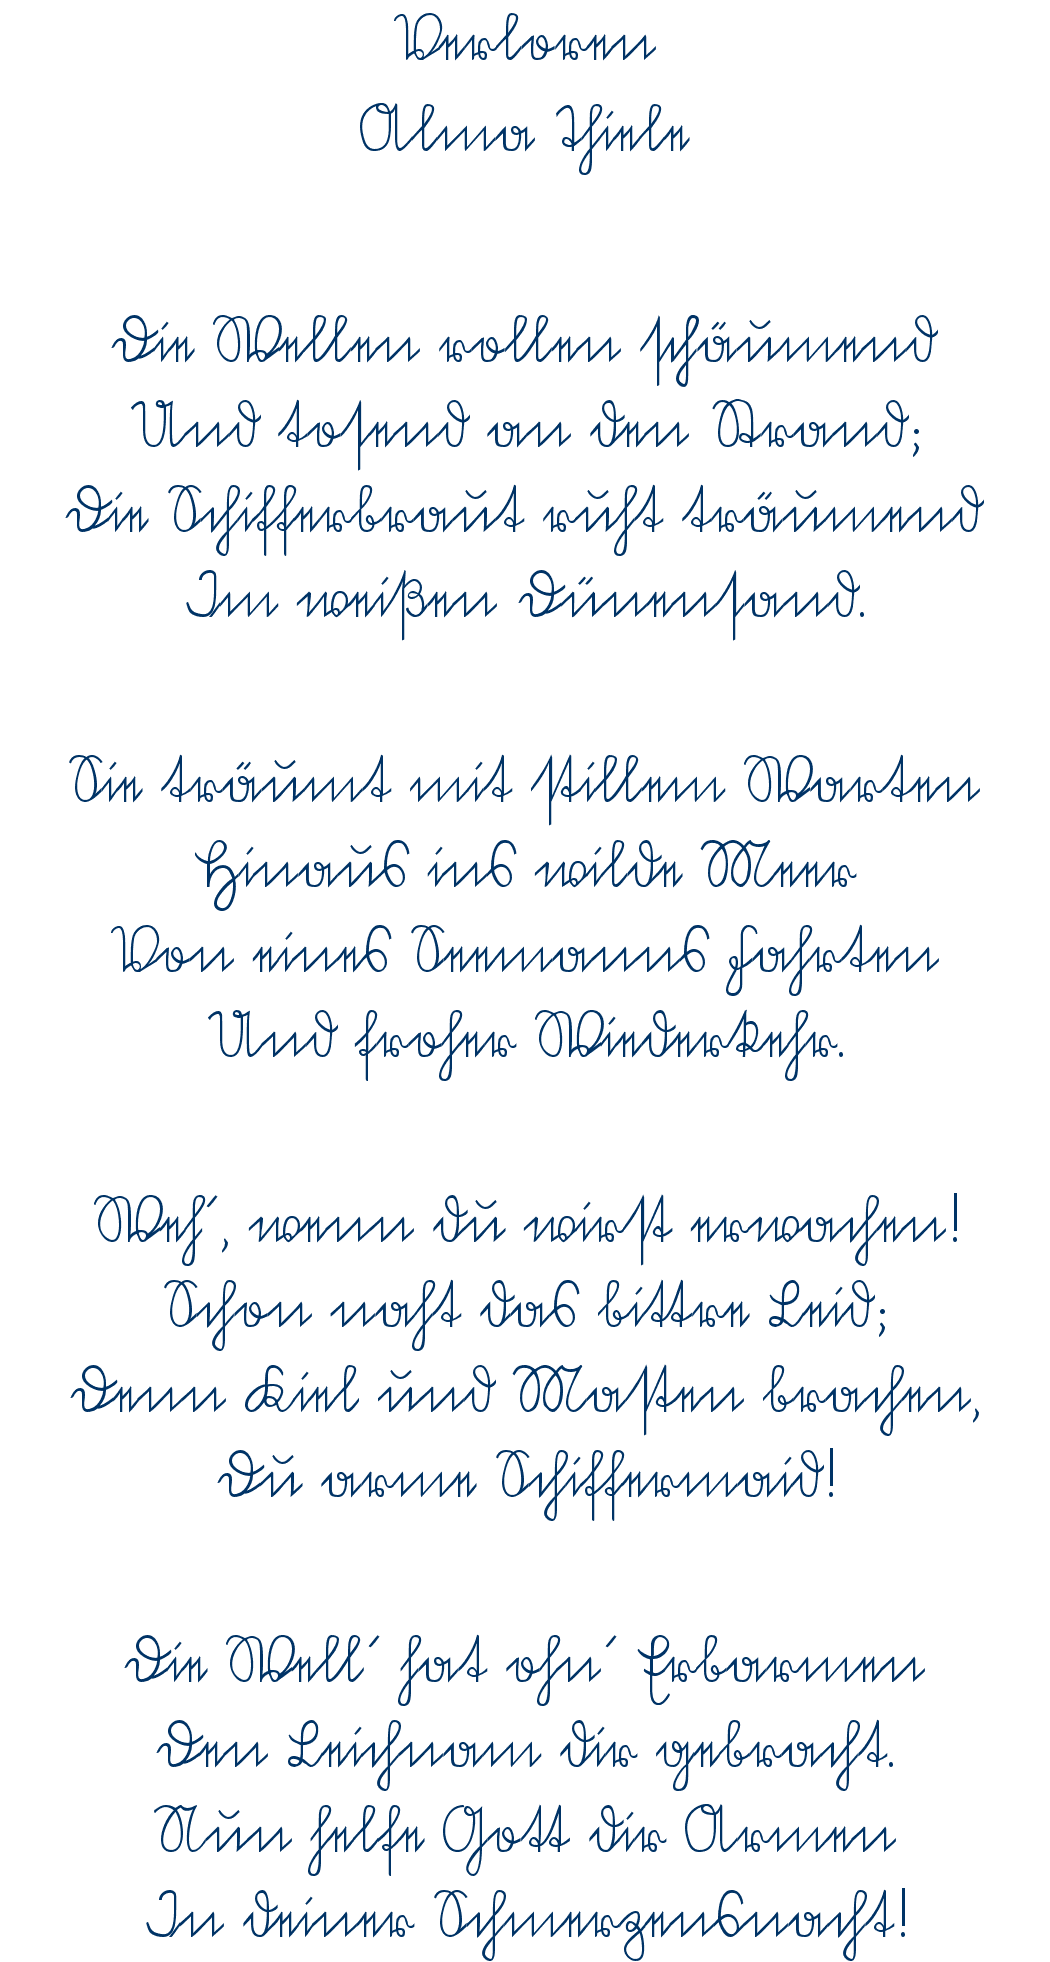 Verloren
Alma Thiele
Die Wellen rollen schäumend
Und tosend an den Strand;
Die Schifferbraut ruht träumend
Im weißen Dünensand.
Sie träumt mit stillem Warten
Hinaus ins wilde Meer
Von eines Seemanns Fahrten
Und froher Wiederkehr.
Weh´, wenn du wirst erwachen!
Schon naht das bittre Leid;
Denn Kiel und Masten brachen,
Du arme Schiffermaid!
Die Well´ hat ohn´ Erbarmen
Den Leichnam dir gebracht.
Nun helfe Gott dir Armen
In deiner Schmerzensnacht!